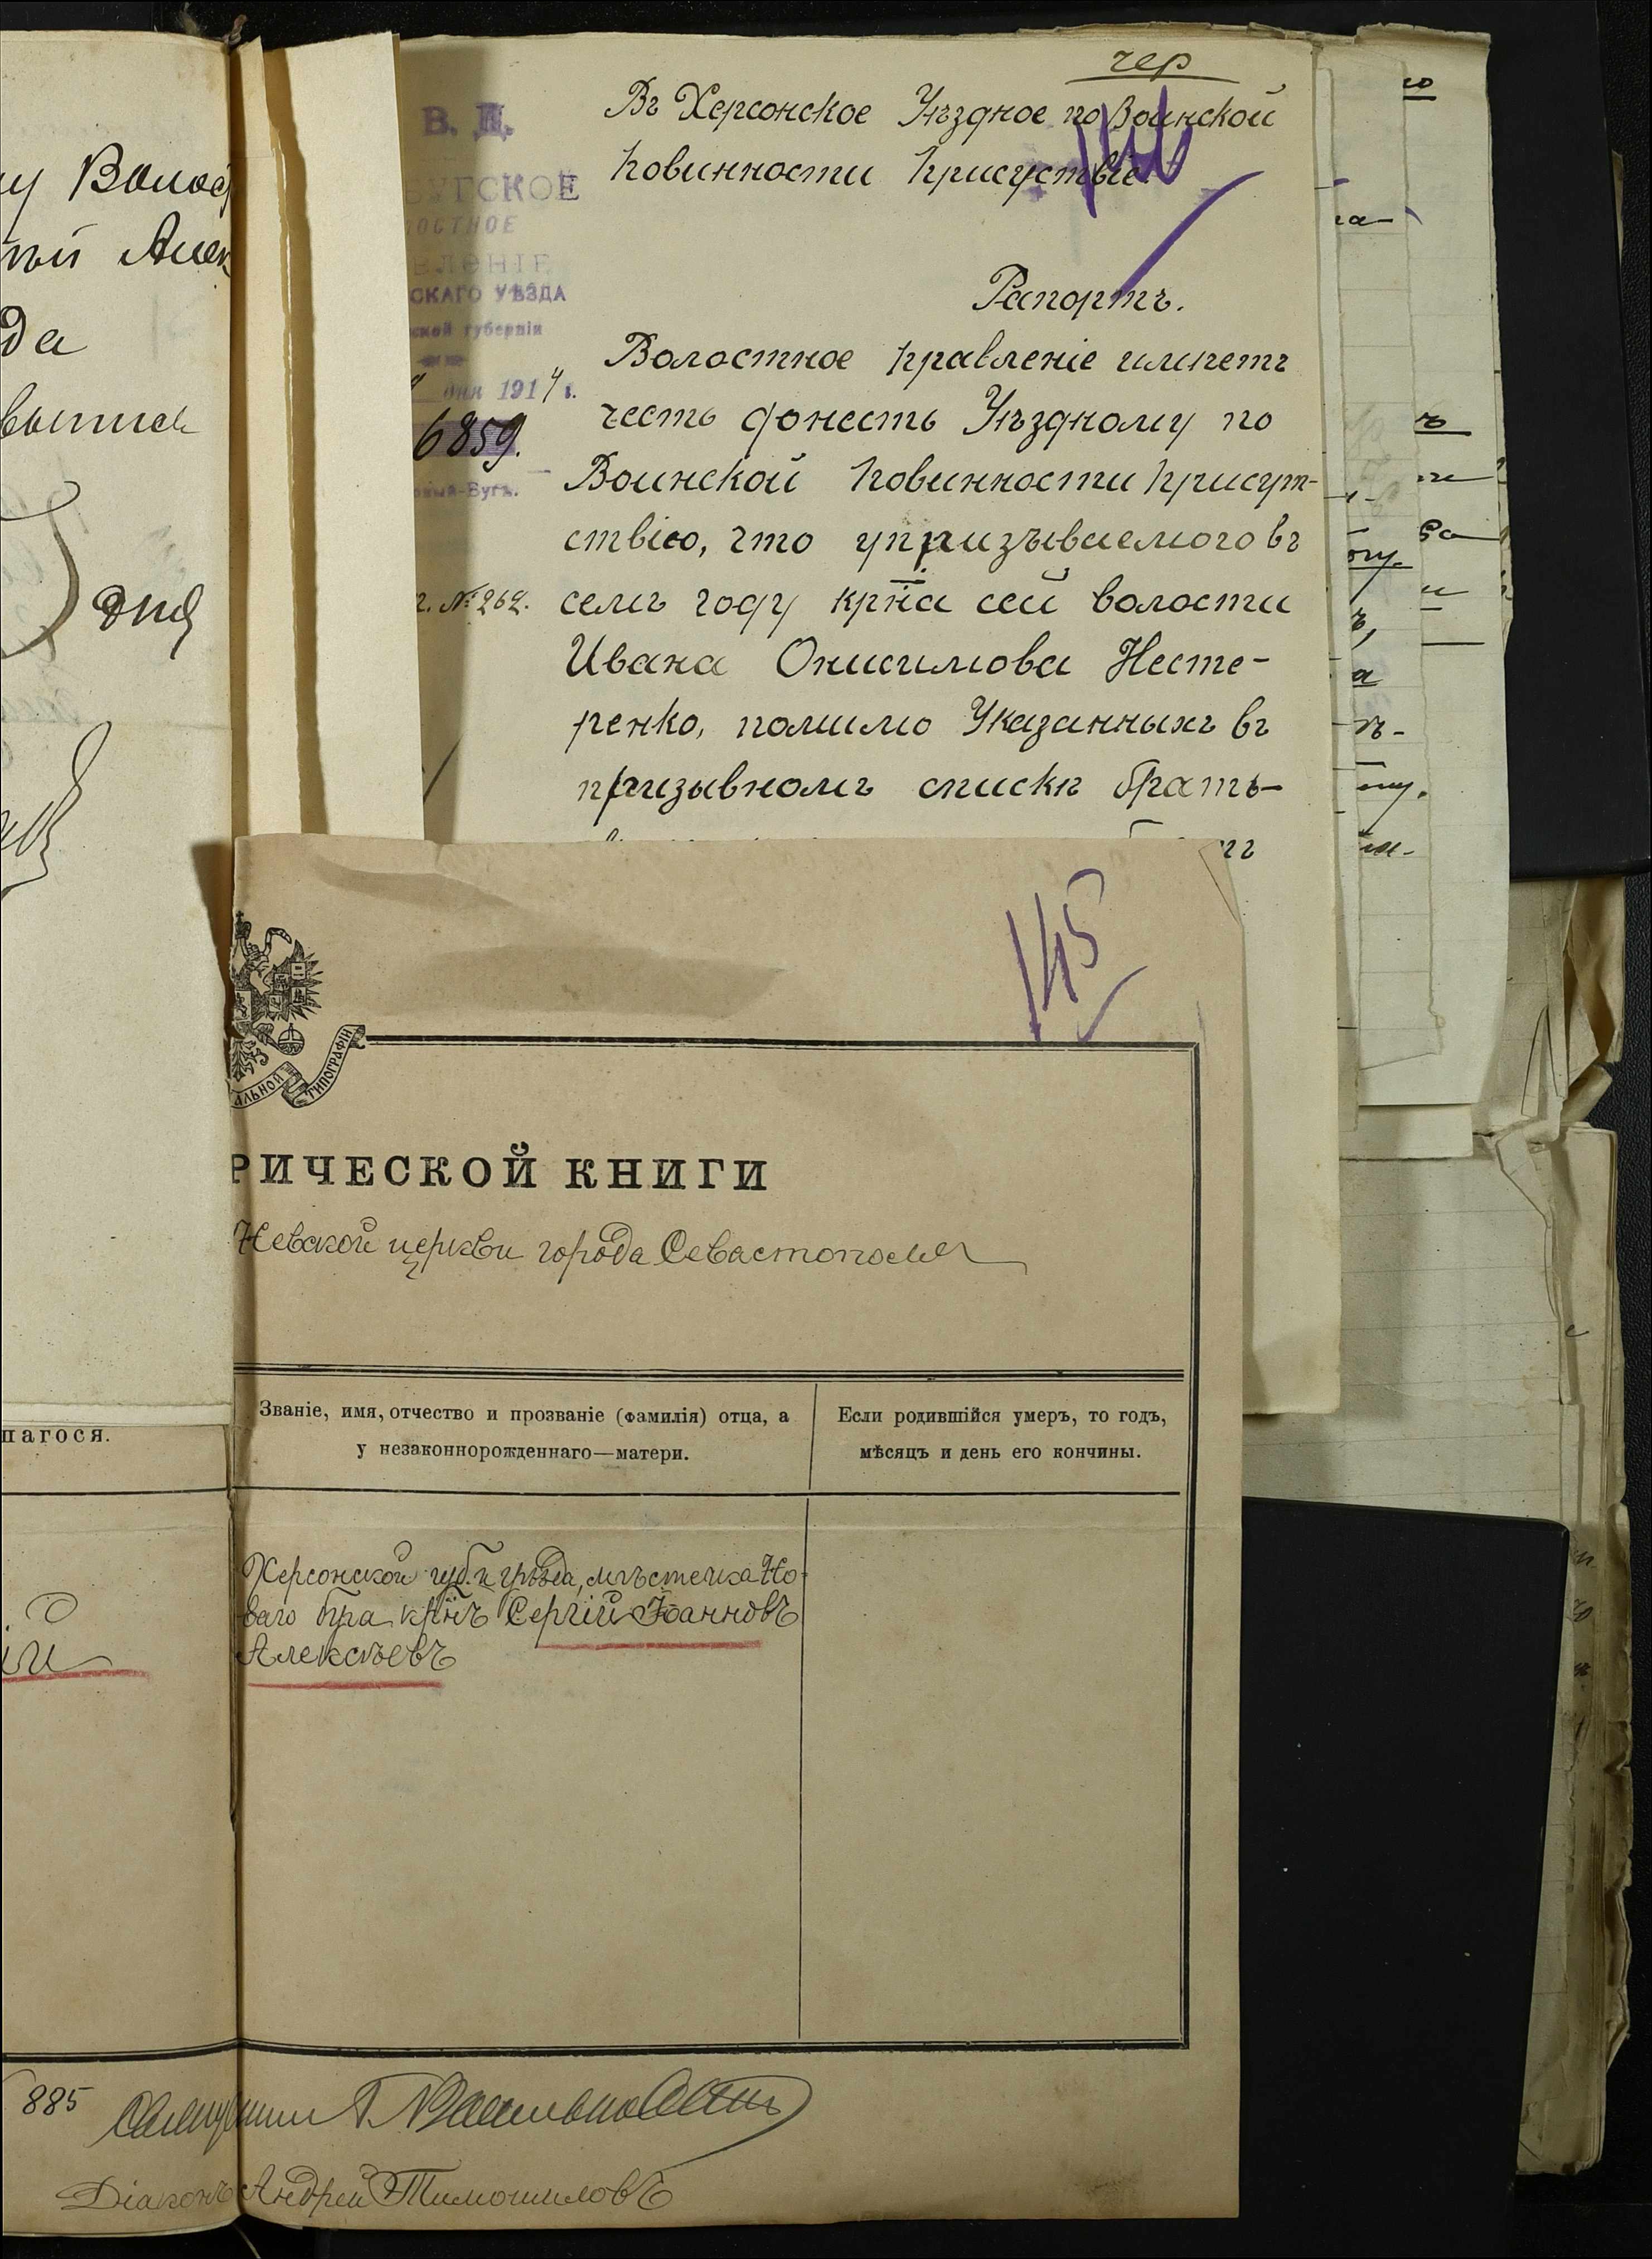 у Волос
да
чер
Въ Херсонское Уѣздное по Воинской
Повинности Присуствіе.
Рапортъ.
В. Д.
БУГСКОЕ
ОСТНОЕ
ВЛЕНІЕ
СКАГО УѢЗДА
ской губерніи
дня 1914 г.
6859.
овый-Бугъ.
г. № 262.
Волостное Правленіе имѣетъ
честь донесть Уѣздному по
Воинской Повинности Присут-
ствію, что у призываемого въ
семъ году крна сей волости
Ивана Онисимова Несте-
ренко, помимо Указанныхъ въ
призывномъ спискѣ брать-
145
АЛЬНОЙ ТИПОГРАФІИ
РИЧЕСКОЙ КНИГИ
Невской церкви города Севастополя
шагося.
Званіе, имя, отчество и прозваніе (фамилія) отца, а
у незаконнорожденнаго—матери.
Если родившійся умеръ, то годъ,
мѣсяцъ и день его кончины.
Херсонской губ. и уѣзда, мѣстечка Но-
ваго Буга крнъ Сергій Іоанновъ
Алексѣевъ
ій
885
Діаконъ Андрей Тимошиловъ